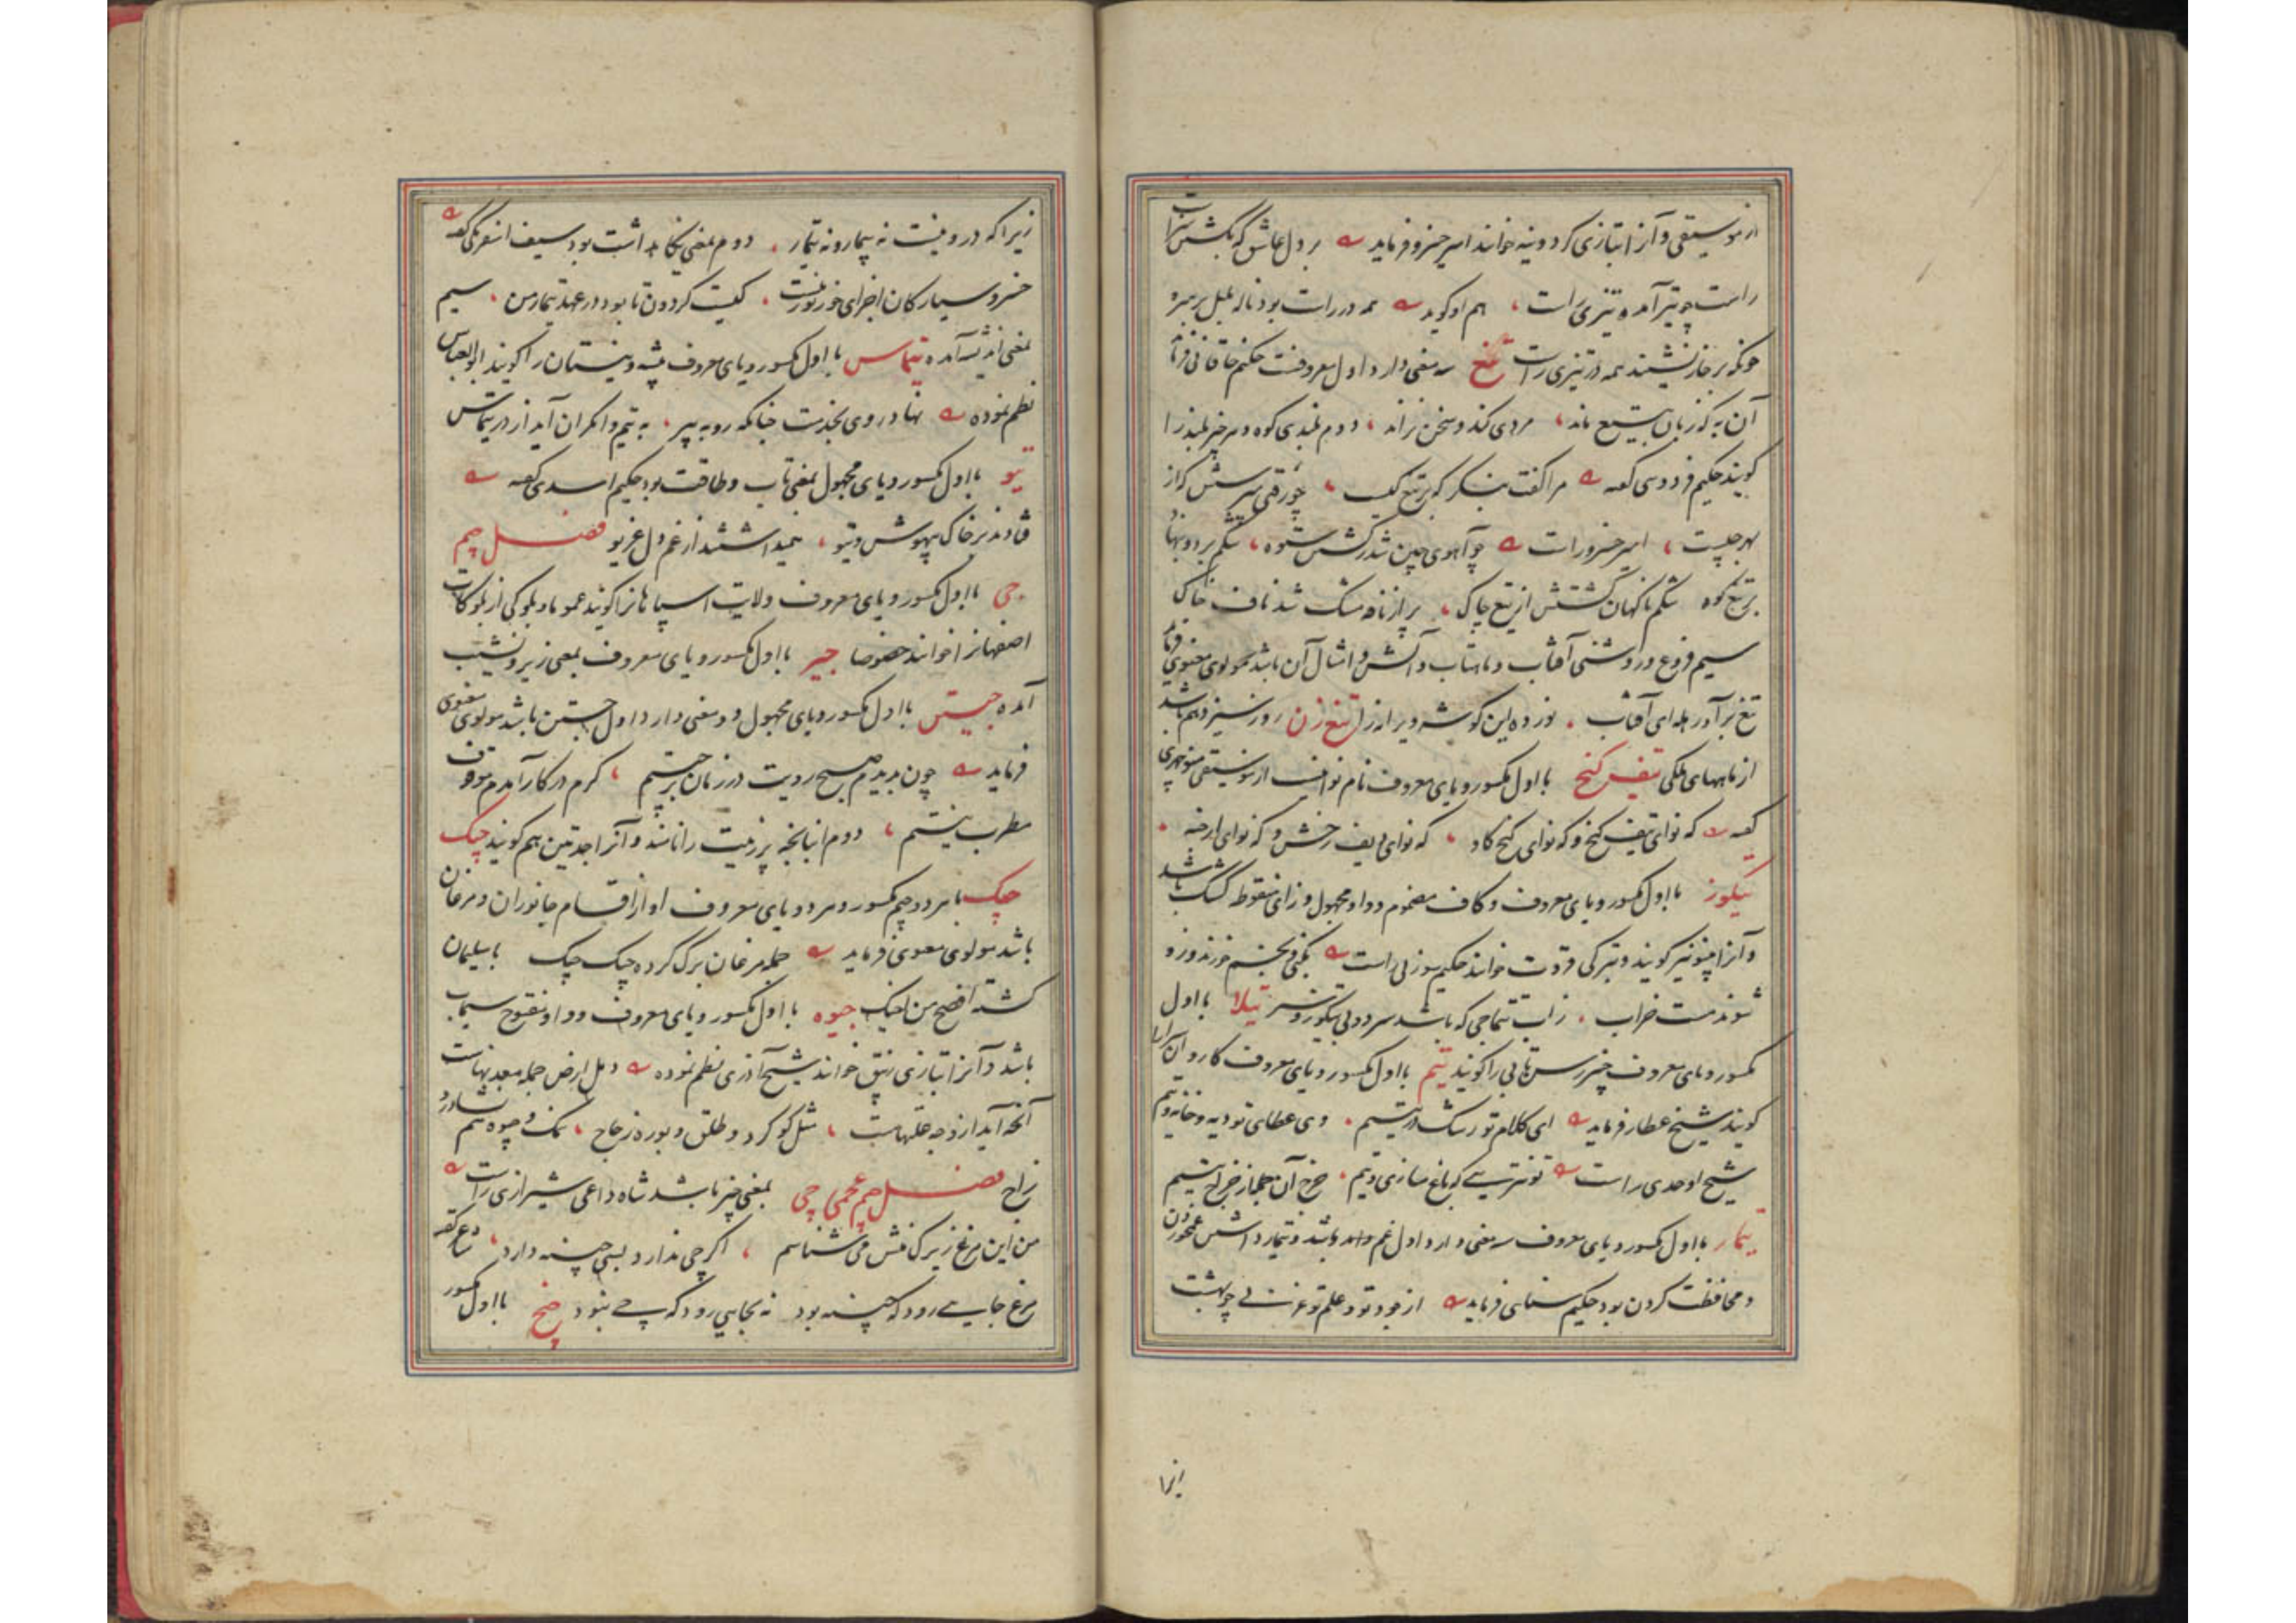 از موسیقی و آنرا بتازی کردونیه خوانند امیر خسرو فرماید بر دل عاشق که بکشتن سزاست
راست چو تیر آمده تیزی راست هم او گوید همه در راست بود ناله بلبل بر سرو
چونکه بر خار نشیند همه در تیزی راست تیغ سه معنی دارد اول معروفست حکیم خاقانی فرماید
آن به که زبان بتیغ ماند مردی کند و سخن نراند دوم بلندی کوه و هر چیز بلند را
گویند حکیم فردوسی گفته مرا گفت بنگر که بر تیغ کیست چو رفتی سرش گراز
بهر چیست امیر خسرو راست چو آهوی چین شد ز گشتن ستوه شکم برد و بنهاد
بر تیغ کوه شکم ناگهان گشتش از تیغ چاک پر از نافه مشک شد ناف خاک
سیم فروغ و روشنی آفتاب و ماهتاب و آتش و امثال آن باشد مولوی معنوی فرماید
تیغ برآور هله ای آفتاب نور ده این گوشه ویرانه را تیغ زن روز سیزدهم باشد
از ماههای ملکی تیف گنج با اول مکسور و یای معروف نام نوائیست از موسیقی منوچهری
گفته که نوای تیف گنج و که نوای گنج گاو که نوای دیف رخش و که نوای ارجنه
تیکوز با اول مکسور و یای معروف و کاف مضموم و واو مجهول و زای منقوطه کشک باشد
و آنرا پینو نیز گویند و بترکی قروت خوانند حکیم سوزنی راست
شوند مست خراب ز آب تتماجی که باشد سرد و بی تیکوز و سیر تیلا با اول
مکسور و یای معروف چیز رستائی را گویند تیم با اول مکسور و یای معروف کاروان سرا را
گویند شیخ عطار فرماید ای کلام تو رشک در یتیم وی عطای تو دیه و خانه و تیم
شیخ اوحدی راست تو نترسی که باغ سازی و تیم خرج آن جمله از خراج یتیم
تیمار با اول مکسور و یای معروف سه معنی دارد اول غم و اندوه باشد و تیمار داشتن غمخوردن
و محافظت کردن بود حکیم سنائی فرماید از جود تو و علم تو غزنی چو بهشت
زیرا که درو نیست نه بیمار و نه تیمار دوم بمعنی نگاهداشت بود سیف اسفرنگی گفته
خسرو سیارگان اجرای خور تو نیست کیست گردون تا بود در عهد تیمار من سیم
بمعنی اندیشه آمده تیماس با اول مکسور و یای معروف بیشه و نیستان را گویند ابوالعباس
نظم نموده نهاد روی بخدمت چنانکه روبه پیر به تیم واکران آید از در تیماس
تیو با اول مکسور و یای مجهول بمعنی تاب و طاقت بود حکیم اسدی گفته
فتادند بر خاک بیهوش و تیو همیداشتند از غم دل غریو فصل جیم
جی با اول مکسور و یای معروف ولایت اسپاهانرا گویند عموما و بلوکی از بلوکات
اصفهانرا خوانند خصوصا جیر با اول مکسور و یای معروف بمعنی زیر و نشیب
آمده جیستن با اول مکسور و یای مجهول دو معنی دارد اول جستن باشد مولوی معنوی
فرماید چون بدیدم صبح رویت در زمان برجیستم گرم در کار آمدم موقوف
مطرب نیستم دوم انبانچه پر زیت را نامند و آنرا جدتین هم گویند جیک
جیک با هر دو جیم مکسور و هر دو یای معروف آواز اقسام جانوران و مرغان
باشد مولوی معنوی فرماید جمله مرغان ترک کرده جیک جیک با سلیمان
گشته افصح من اخیک جیوه با اول مکسور و یای معروف و واو مفتوح سیماب
باشد و آنرا بتازی زیبق خوانند شیخ آذری نظم نموده دمل ارض جمله معدنهاست
آنچه آید از وجه علتهاست مثل گوگرد و طلق و بوره زجاج نمک و جیوه سم نشادر و
زاج فصل جیم عجمی چی بمعنی چیز باشد شاه داعی شیرازی راست
من این مرغ زیرک منش می شناسم اگر چی ندارد بسی چینه دارد
مرغ جایی رود که چینه بود نه بجایی رود که چی نبود چیخ با اول مکسور
زیرا